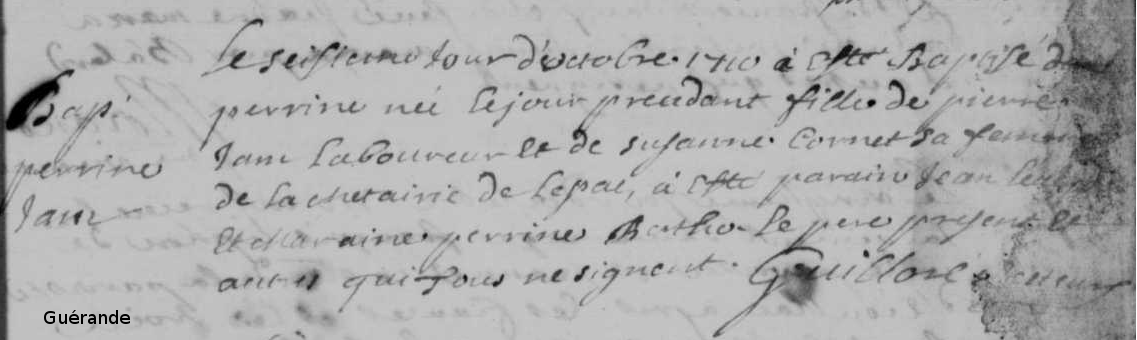 Bap.
perrine
Jam
le seistieme jour d'octobre 1710 à este Baptisé
perrine neé le jour precedant fille de pierre
Jam Laboureur et de susanne Cornet sa femme
de la metairie de Lepac, à este parain Jean
et Maraine perrine Bertho Le pere present et
autres qui tous ne signent. Guilloré
Guérande